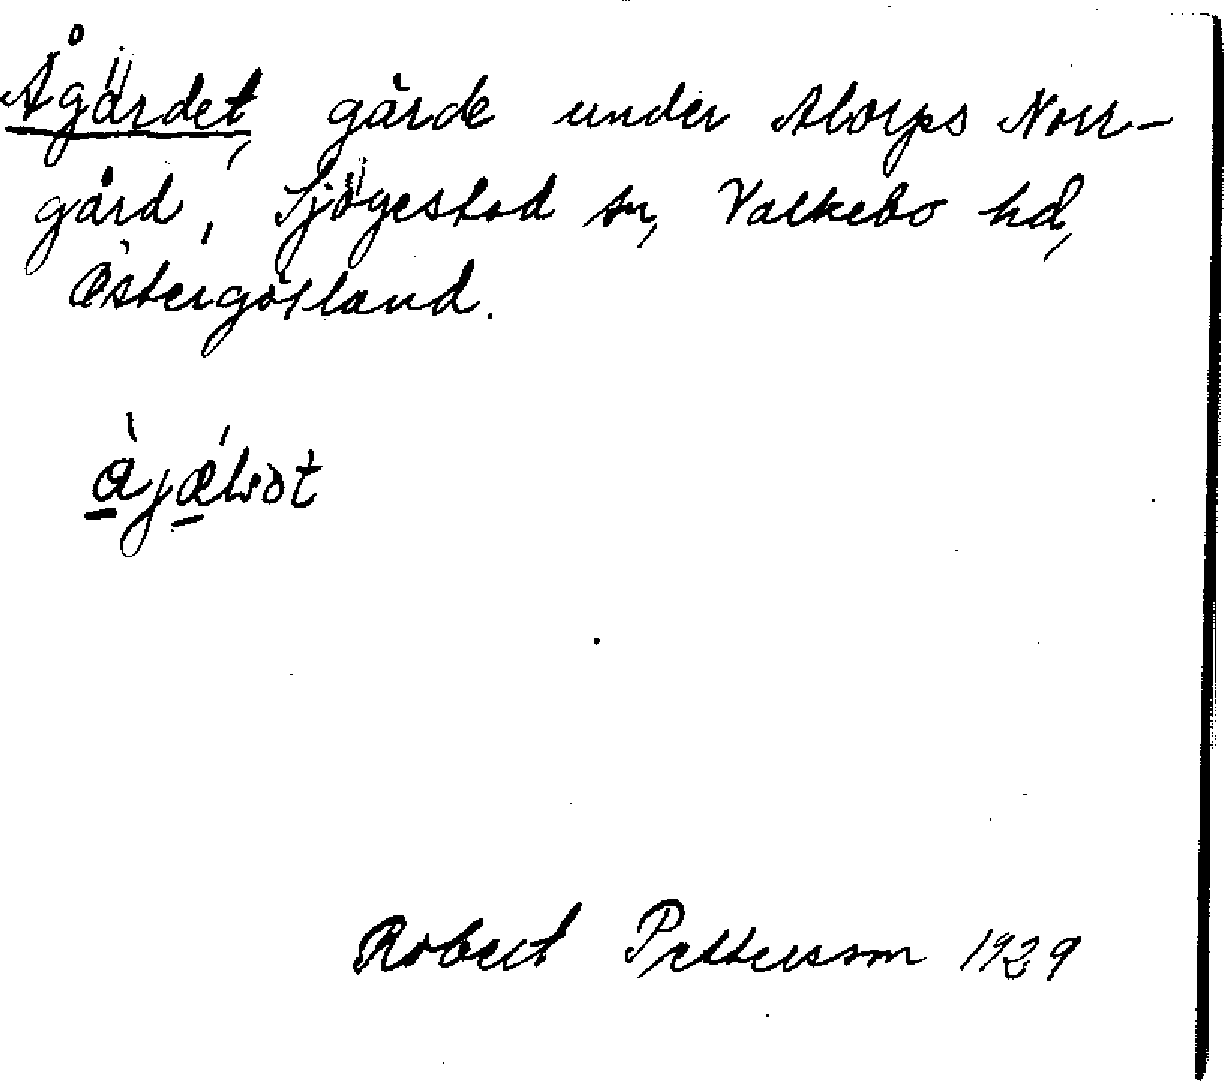 Ågärdet, gärde under Alorps Norr-
gård, Sjögestad sn, Valkebo hd,
Östergötland.
Robert Pettersson 1929